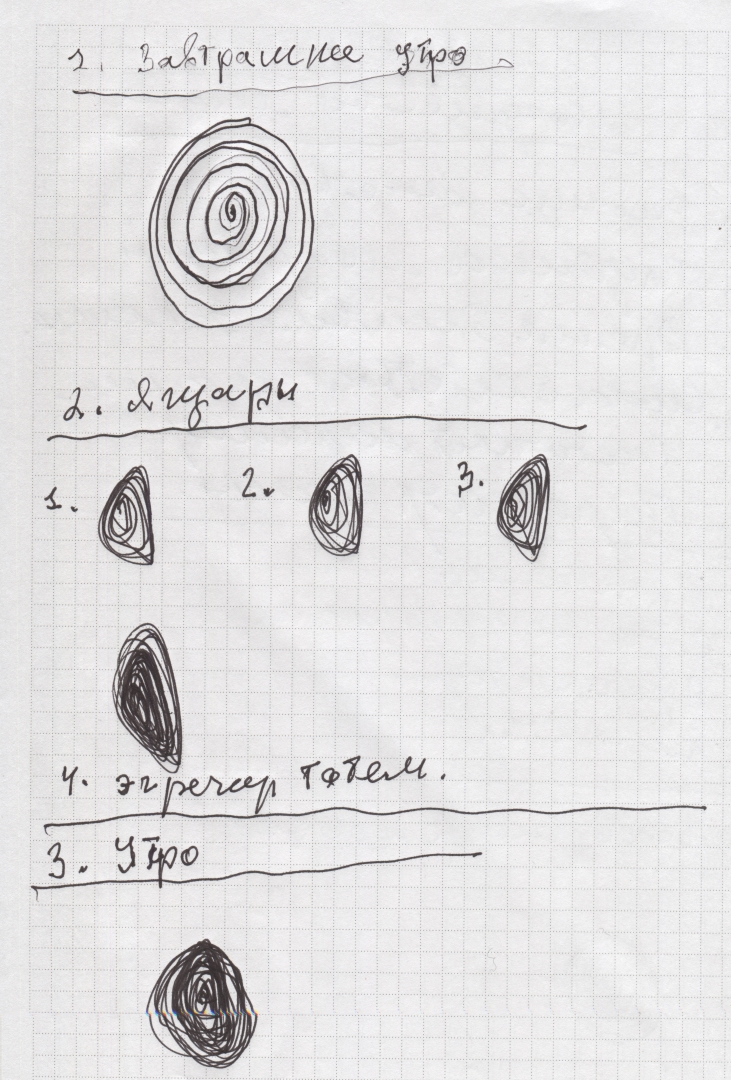 1. Завтрашнее утро.
2. Ягуары
1. 2. 3.
4. эгрегор тотем.
3. Утро